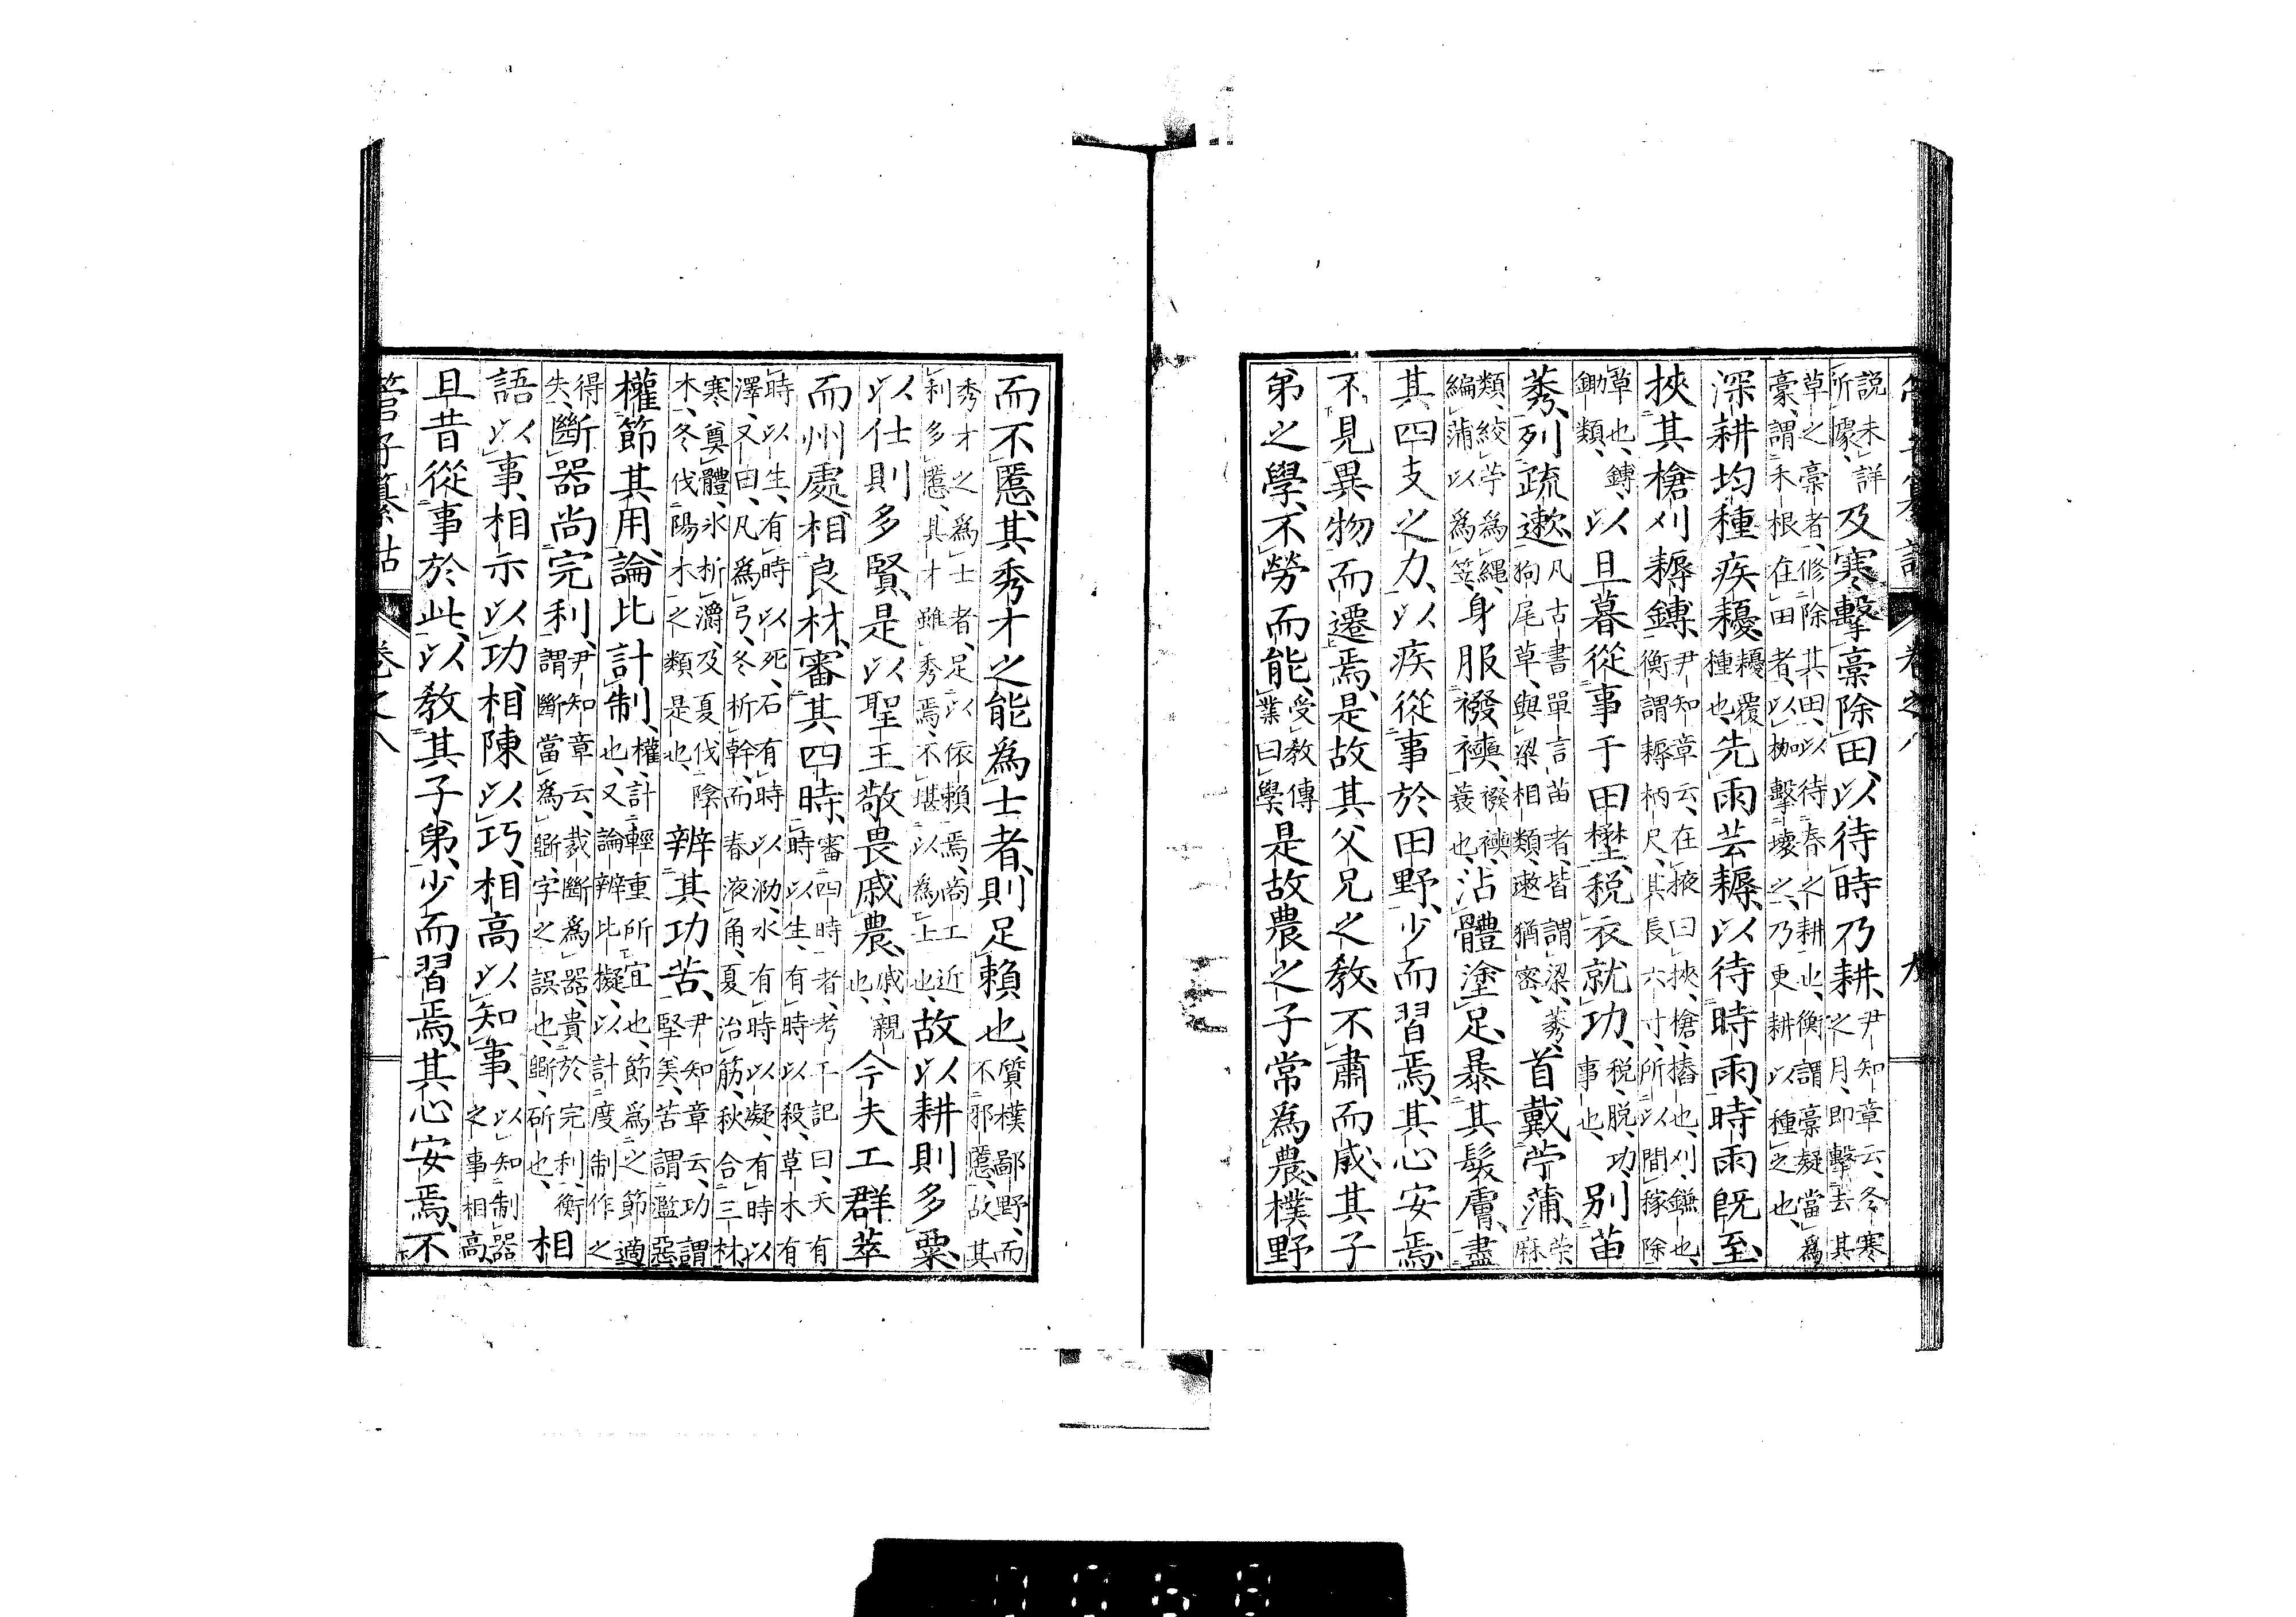 説未詳所據及寒擊槀除田以待時乃耕尹知章云冬寒之月即擊去其
草之槀者修除其田以待春之耕也衡謂槀疑當爲豪謂禾根在田者以枷擊壞之乃更耕以種之也
深耕均種疾耰耰覆種也先雨芸耨以待時雨時雨既至
挾其槍刈耨鎛尹知章云在掖曰挾槍樁也刈鎌也衡謂耨柄尺其長六寸所以間稼除
草也鎛鋤類以旦暮從事于田壄税衣就功税脱功事也別苗
莠列疏遬凡古書單言苗者皆謂粱莠狗尾草與粱相類遬猶密首戴苧蒲苧麻
類絞苧爲繩編蒲以爲笠身服襏襫襏襫蓑也沾體塗足暴其髮膚盡
其四支之力以疾從事於田野少而習焉其心安焉
不見異物而遷焉是故其父兄之教不肅而成其子
弟之學不勞而能受教傳業曰學是故農之子常爲農樸野
而不慝其秀才之能爲士者則足賴也質樸鄙野而不邪慝故其
秀才之爲士者足以依賴焉商工近利多慝其才雖秀焉不堪以爲上也故以耕則多粟
以仕則多賢是以聖王敬畏戚農戚親也今夫工群萃
而州處相良材審其四時審四時者考工記曰天有時以生有時以殺草木有
時以生有時以死石有時以泐水有時以凝有時以澤又曰凡爲弓冬析幹而春液角夏治筋秋合三材
寒奠體冰析灂及夏伐陰木冬伐陽木之類是也辨其功苦尹知章云功謂堅美苦謂濫惡
權節其用論比計制權計輕重所宜也節爲之節適也又論辨比擬以計度制作之
得失斷器尚完利尹知章云裁斷爲器貴於完利衡謂斷當爲斲字之誤也斲斫也相
語以事相示以功相陳以巧相高以知事以知制器之事相高
旦昔從事於此以教其子弟少而習焉其心安焉不
管子纂詁 卷之八